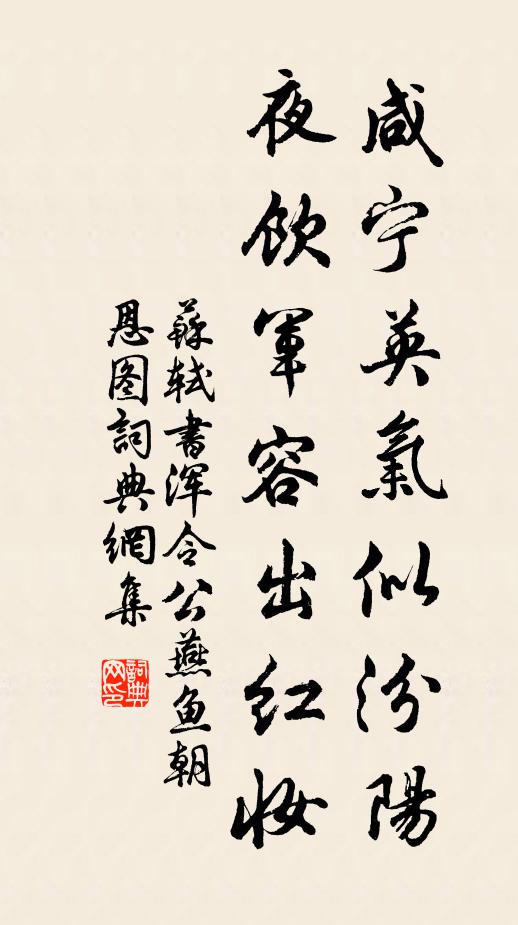 咸宁英氣似汾陽
夜飲軍容出红妆
蘇轼書浑令公燕鱼朝
恩图詞典網集
詞典网印